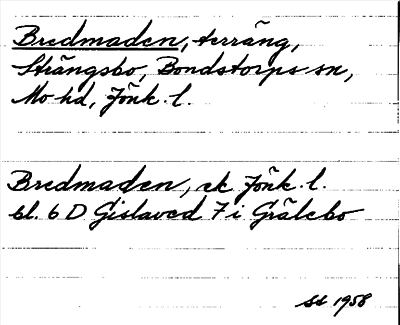 Bredmaden, terräng,
Strängsbo, Bondstorps sn,
Mo hd, Jönk. l.
Bredmaden, ek Jönk. l.
bl. 6 D Gislaved 7 i Grälebo
SS 1958